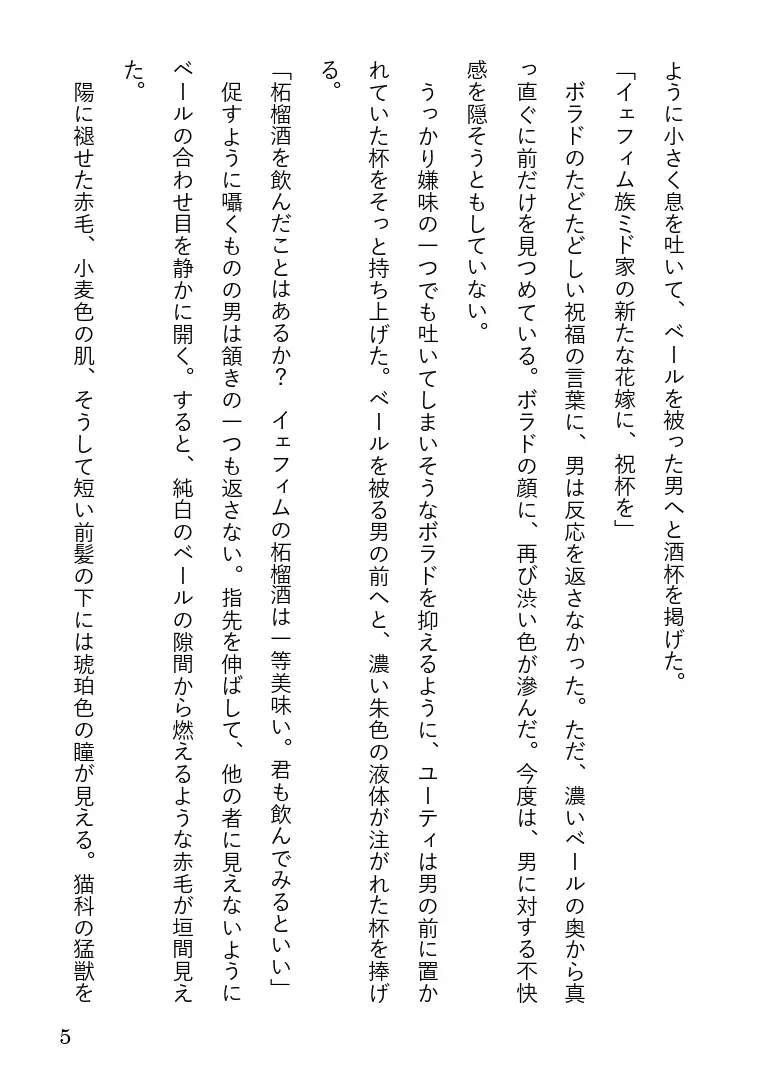 ように小さく息を吐いて、ベールを被った男へと酒杯を掲げた。
「イェフィム族ミド家の新たな花嫁に、祝杯を」
ボラドのたどたどしい祝福の言葉に、男は反応を返さなかった。ただ、濃いベールの奥から真
っ直ぐに前だけを見つめている。ボラドの顔に、再び渋い色が滲んだ。今度は、男に対する不快
感を隠そうともしていない。
うっかり嫌味の一つでも吐いてしまいそうなボラドを抑えるように、ユーティは男の前に置か
れていた杯をそっと持ち上げた。ベールを被る男の前へと、濃い朱色の液体が注がれた杯を捧げ
る。
「柘榴酒を飲んだことはあるか？　イェフィムの柘榴酒は一等美味い。君も飲んでみるといい」
促すように囁くものの男は頷きの一つも返さない。指先を伸ばして、他の者に見えないように
ベールの合わせ目を静かに開く。すると、純白のベールの隙間から燃えるような赤毛が垣間見え
た。
陽に褪せた赤毛、小麦色の肌、そうして短い前髪の下には琥珀色の瞳が見える。猫科の猛獣を
5